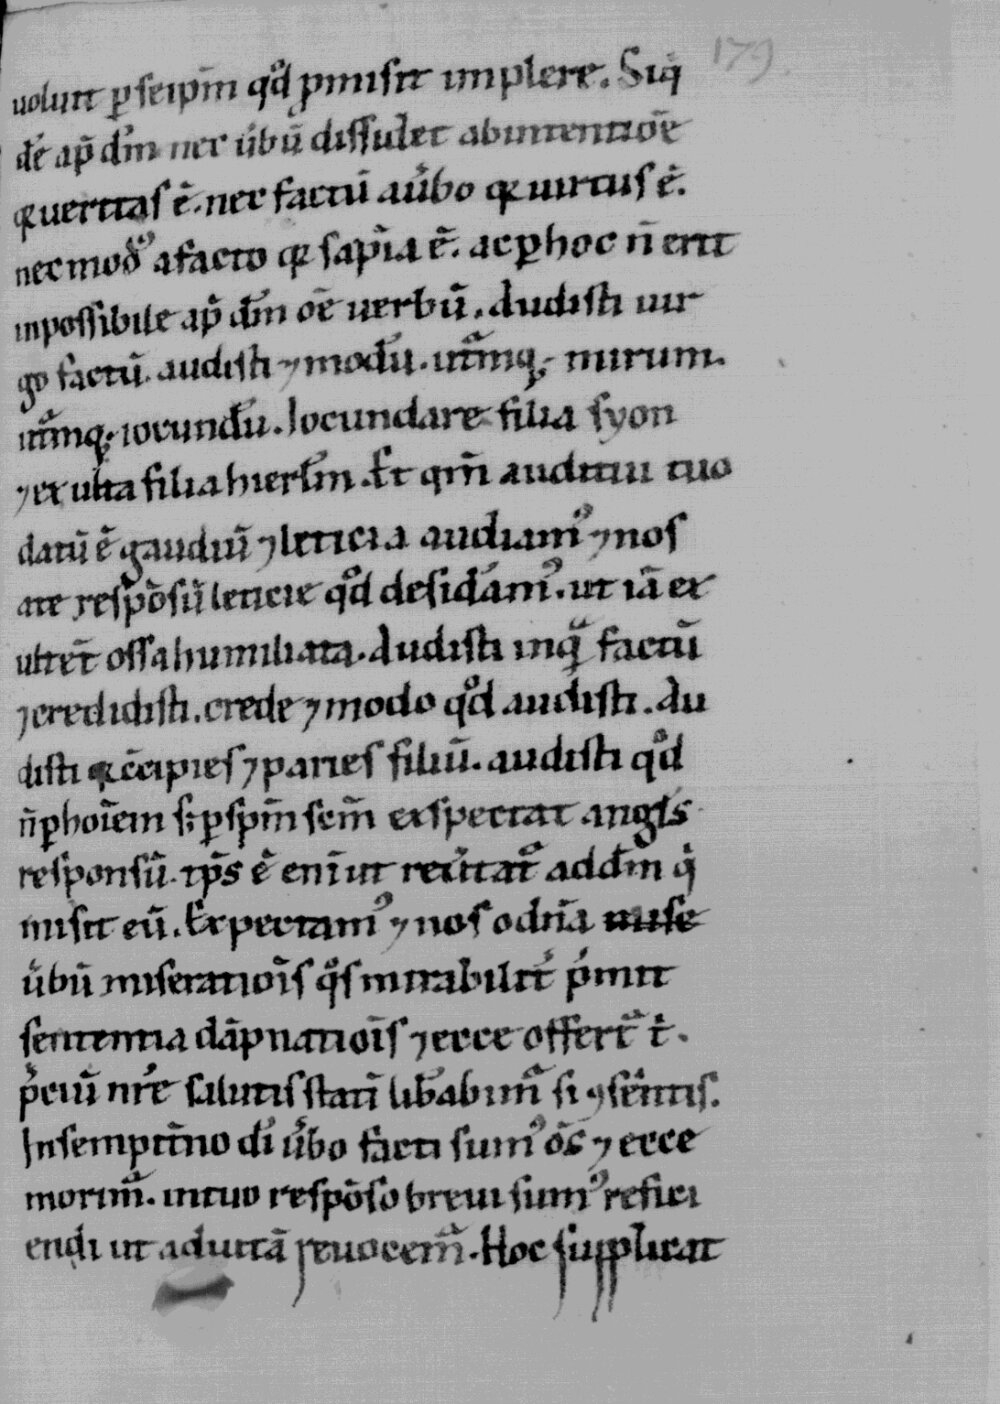 179
uolut p̱ seip̄m qd̊ p̱misit implere. Siq̇
dē ap̄ dm̄ nec u̇bū dissidet ab intentiōe
q̨ ueritas ē. nec factū au̇bo q̨ uirtus ē.
nec mod᷒ afacto q̨ sapīa ē. ac p̱ hoc n̄ erit
inpossibile ap̄ dm̄ oē uerbū. Audisti uir
go factū. audisti ⁊ modū. utͣmq;. mirum.
utͣmq;. iocundū. Iocundare filia syon
⁊ exulta filia hierlm̄. Et qm̄ auditui tuo
datū ē gaudiū ⁊ leticia audiam᷒ ⁊ nos
ate respōsū leticie qd̊ desidam᷒. ut iā ex
ultēt ossa humiliata. Audisti inqͣ factū
⁊ credidisti. crede ⁊ modo qd̊ audisti. Au
disti q̨ cc̄ipies ⁊ paries filiū. audisti qd̊
n̄ p̱ hoīem s; p̱ sp̄m scm̄ exspectat angl̄s
responsū. tp̄s ē enī ut reu̇tat᷑ ad dm̄ q̇
misit eū. Expectam᷒ ⁊ nos o dn̄a
u̇bū miseratiōis q̊s mirabilit̄ p̄mit
sententia dāpnatiōis ⁊ ecce offert᷑ ṫ.
p̄ciū nr̄e salutis statī lib̄abim᷑ si ꝯsentis.
In sempit̄no dī u̇bo facti sum᷒ oēs ⁊ ecce
morim᷑. in tuo respōso breui sum᷒ refici
endi ut ad uitā reuocem᷑. Hoc supplicat